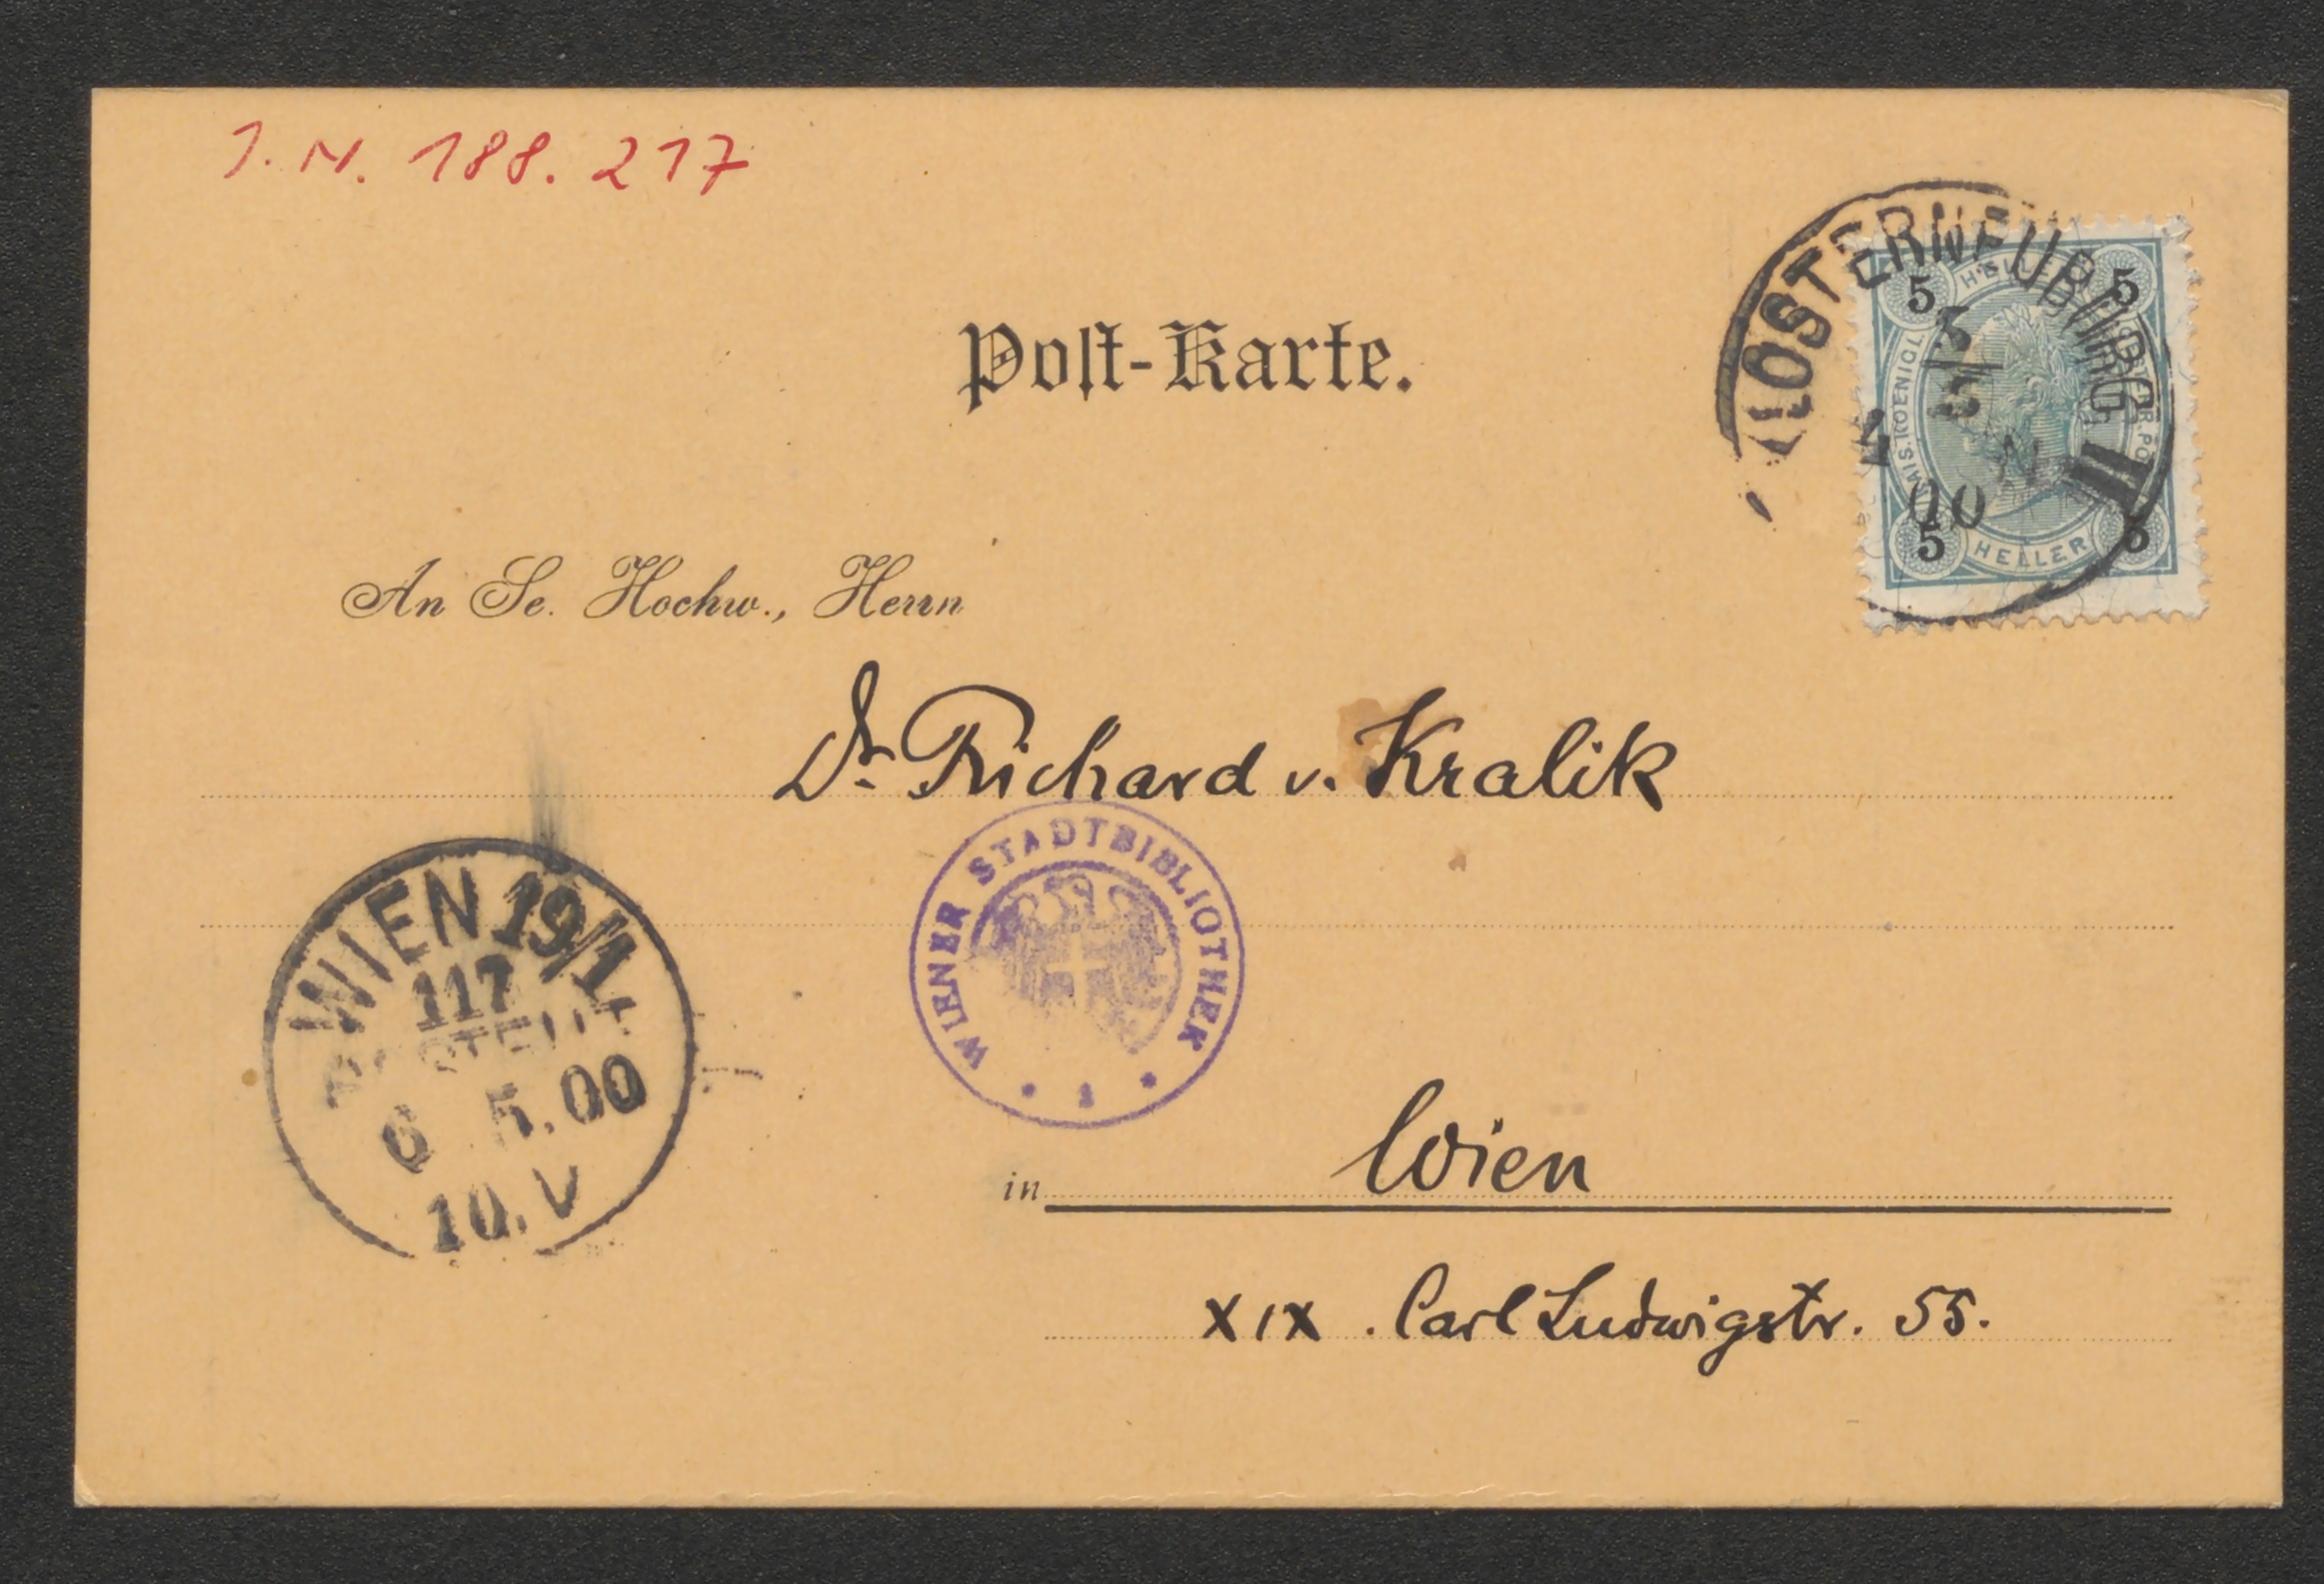 J. N. 188.217
KLOSTERNEUBURG
5
5
4 N
00
5 5
HELLER
KAIS. KOENIGL.
5 5
HELLER
Post-Karte.
An Se. Hochw., Herrn
Dr. Richard v. Kralik
WIEN 19/1
117
BESTELLT
6 5.00
10.V
WIENER STADTBIBLIOTHEK
in Wien
XIX. Carl Ludwigstr. 55.